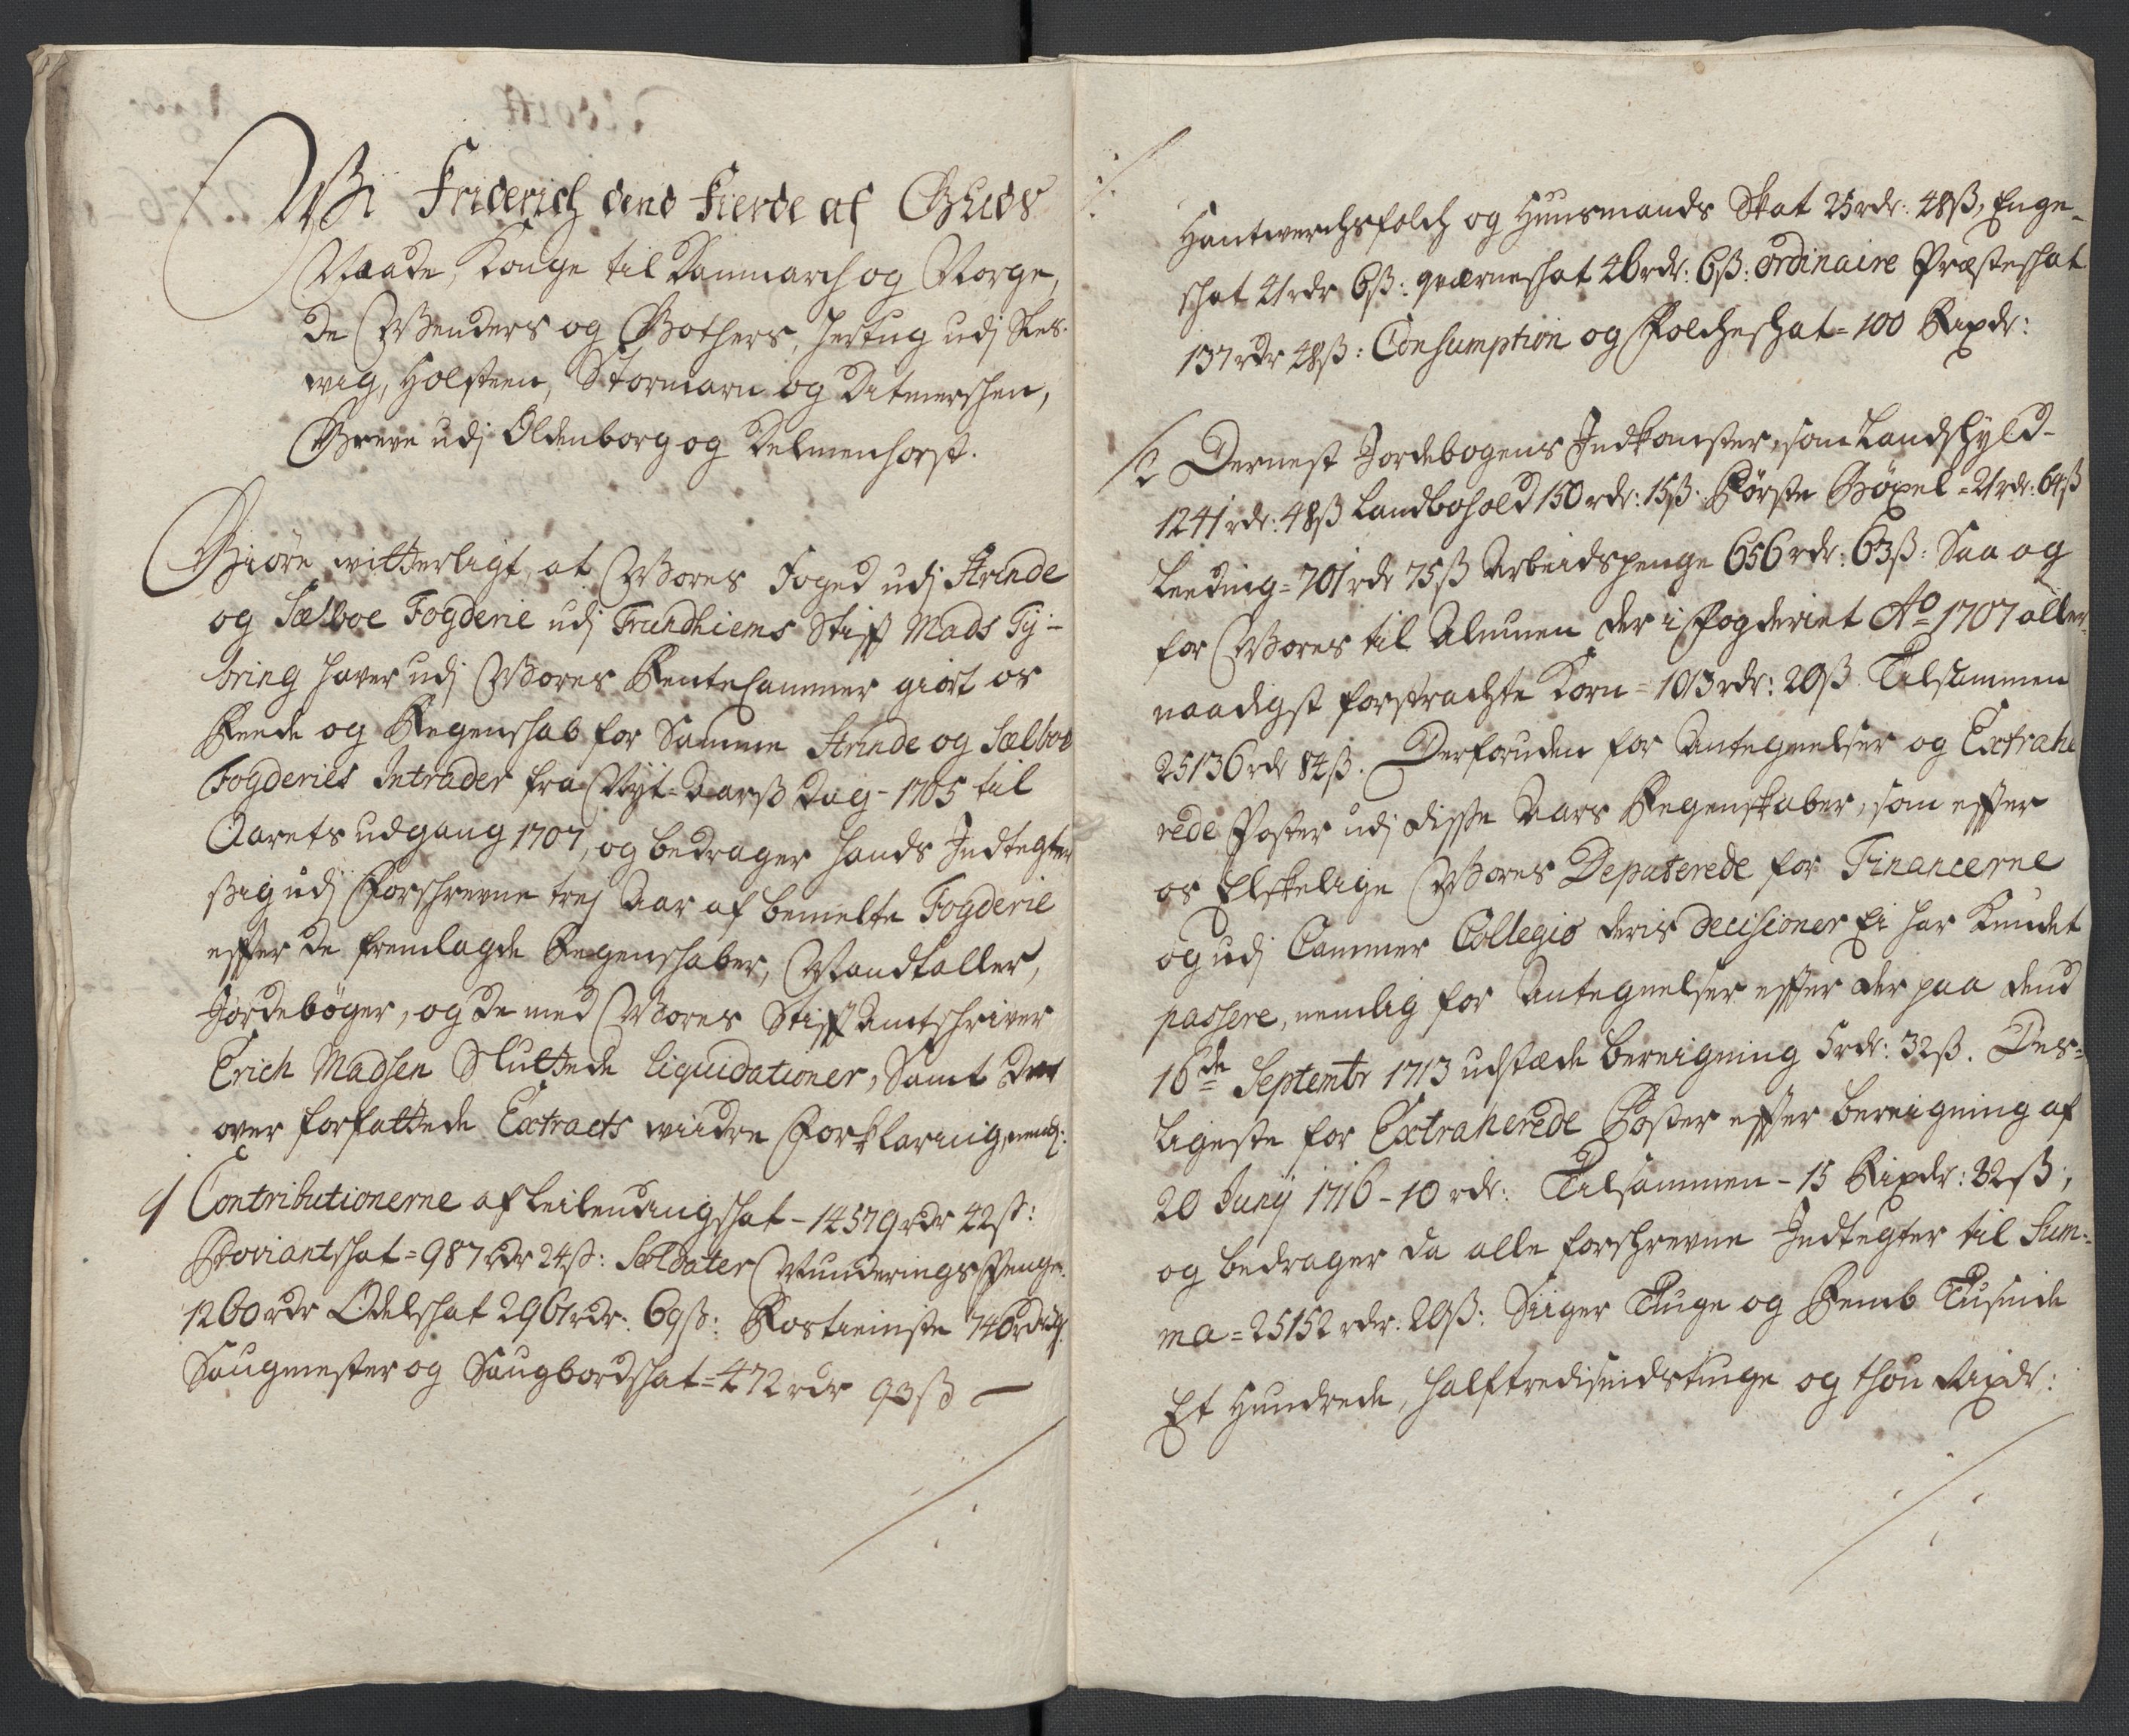 Wi Friderich dend Fierde af Guds
Naade, Konge til Danmarch og Norge,
de Wenders og Gothers, Hertug udj Sles-
wig, Holsteen, Stormarn og Ditmershen,
Greve udj Oldenborg og Delmenhorst.
Giöre witterligt, at Wores Foged udj Strinde
og Sælboe Fogderie udj Trundhiems Stift Mads Ty-
bring haver udj Wores Rentecammer giort os
Reede og Regenschab for Samme Strinde og Sælboe
Fogderies Intrader fra Nyt-Aarß Dag-1705 til
Aarets udgang 1707, og bedrager hands Indtegter
ßig udj Forschrevne trej Aar af bemelte Fogderie
effter de fremlagde Regenschaber, Mandtaller,
Jordeböger, og de med Wores Stifft Amtschriver
Erich Madsen Sluttede liquidationer, Samt der
over forfattede Extracts wiidre Forklaring, neml:
1 Contributionerne af Leilendingschat - 14579 rdr 42ß:
Proviantschat = 987 rdr 24ß: Soldater Munderings Penge
1260 rdr Odelschat 2961 rdr: 69ß: Rostieniste 746 rdr
Saugmester og Saugbordschat = 472 rdr 93ß —
./.
./.
Hantwerchsfolch og Huusmands Skat 25 rdr: 48ß, Enge-
schat 41 rdr 6ß: qværneschat 46 rdr: 6ß: ordinaire Præsteschat
137 rdr 48ß: Consumption og Folcheschat = 100 Rixdr:
2 Dernest Jordebogens Indkomster, som Landschyld-
1241 rdr: 48ß Landbohold 150 rdr: 15ß: Förste Böxel = 21 rdr: 64ß
Leeding = 701 rdr 75ß Arbeidspenge 656 rdr: 63ß: Saa og
for Wores til Almuen der i Fogderiet Ao 1707 aller-
naadigst forstrachte Korn = 1013 rdr: 20ß Tilsammen
25136 rdr 84ß. Derforuden for Antegnelser og Extrahe
rede Poster udj disse Aars Regenskaber, som effter
os Elskelige Wores Deputerede for Financerne
og udj Cammer Collegio deris Decisioner Ei har Kundet
passere, nemlig for Antegnelser effter der paa dend
16de Septembr 1713 udstæde bereigning 5 rdr: 32ß. Des-
ligeste for Extraherede Poster effter bereigning af
20 Junij 1716 - 10 rdr: Tilsammen - 15 Rixdr: 32ß,
og bedrager da alle forschrevne Indtegter til Sum-
ma = 25152 rdr: 20ß: Siiger Tiuge og Femb Tusinde
Et Hundrede, halftredisindstiuge og thou Rixdr:
./.